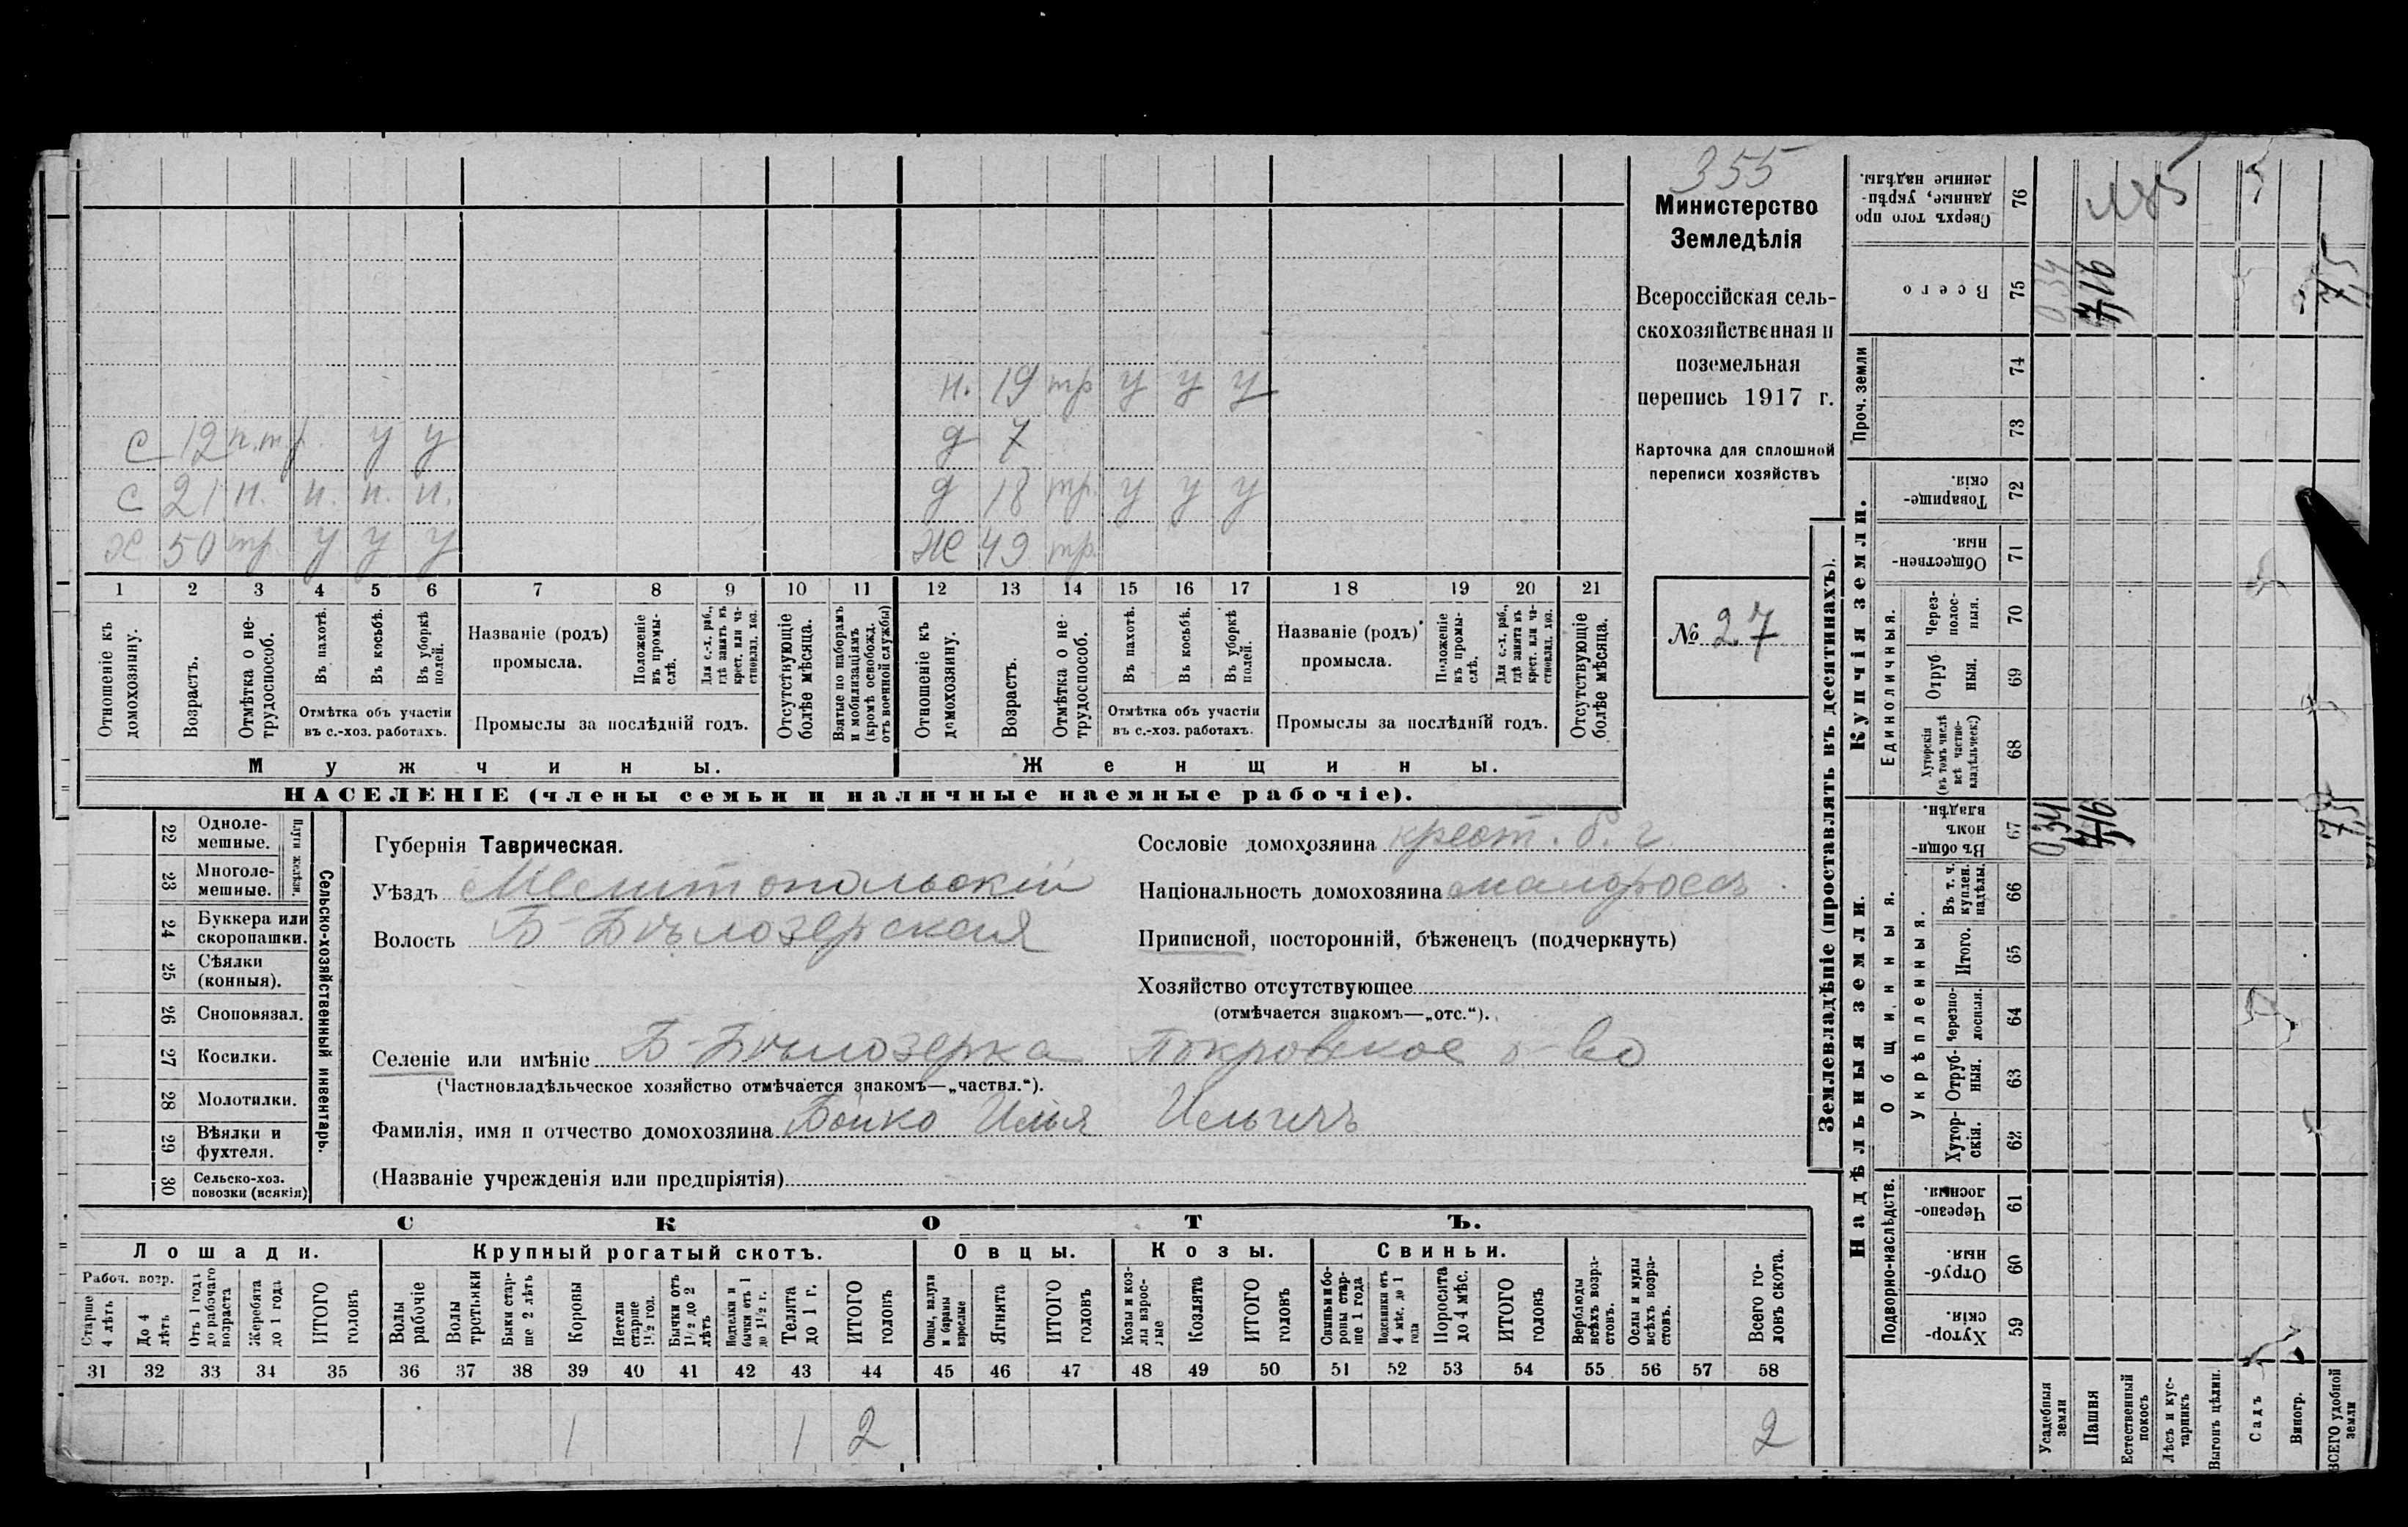 355
Министерство
Земледѣлія
Всероссійская сель-
скохозяйственная и
поземельная
перепись 1917 г.
Карточка для сплошной
переписи хозяйствъ
№ 27
н. 19 тр у у у
с 12 п.тр. у у
д 7
с 21 н. н. н. н.
д 18 тр. у у у
х 50 тр у у у
ж 49 тр.
1 2 3 4 5 6 7 8 9 10 11 12 13 14 15 16 17 18 19 20 21
Отношеніе къ домохозяину.
Возрастъ.
Отмѣтка о не-трудоспособ.
Въ пахотѣ.
Въ косьбѣ.
Въ уборкѣ полей.
Отмѣтка объ участіи
въ с.-хоз. работахъ.
Названіе (родъ)
промысла.
Положеніе въ промы-слѣ.
Для с.-х. раб., гдѣ занятъ въ крест. или ча-стновлад. хоз.
Промыслы за послѣдній годъ.
Отсутствующіе болѣе мѣсяца.
Взятые по наборамъ и мобилизаціямъ (кромѣ освобожд. отъ военной службы)
Отношеніе къ домохозяину.
Возрастъ.
Отмѣтка о не-трудоспособ.
Въ пахотѣ.
Въ косьбѣ.
Въ уборкѣ полей.
Отмѣтка объ участіи
въ с.-хоз. работахъ.
Названіе (родъ)
промысла.
Положеніе въ промы-слѣ.
Для с.-х. раб., гдѣ занята въ крест. или ча-стновлад. хоз.
Промыслы за послѣдній годъ.
Отсутствующіе болѣе мѣсяца.
Мужчины.
Женщины.
НАСЕЛЕНІЕ (члены семьи и наличные наемные рабочіе).
Сельско-хозяйственный инвентарь.
Плуги желѣзн.
22 Однолe-мешные.
23 Многоле-мешные.
24 Буккера или скоропашки.
25 Сѣялки (конныя).
26 Сноповязал.
27 Косилки.
28 Молотилки.
29 Вѣялки и фухтеля.
30 Сельско-хоз. повозки (всякія)
Губернія Таврическая.
Уѣздъ Мелитопольскій
Волость Б-Бѣлозерская
Селеніе или имѣніе Б-Бѣлозерка Покровское о-во
(Частновладѣльческое хозяйство отмѣчается знакомъ—„частвл.“).
Фамилія, имя и отчество домохозяина Бойко Илья Ильичъ
(Названіе учрежденія или предпріятія)
Сословіе домохозяина крест. б. г.
Національность домохозяина малороссъ
Приписной, посторонній, бѣженецъ (подчеркнуть)
Хозяйство отсутствующее
(отмѣчается знакомъ—„отс.“).
СКОТЪ.
Лошади.
Крупный рогатый скотъ.
Овцы.
Козы.
Свиньи.
Рабоч. возр.
Старше 4 лѣтъ
До 4 лѣтъ
Отъ 1 года до рабочаго возраста
Жеребята до 1 года
ИТОГО головъ
Волы рабочіе
Волы третьяки
Быки стар-ше 2 лѣтъ
Коровы
Нетели старше 1½ год.
Бычки отъ 1½ до 2 лѣтъ
Нетелки и бычки отъ 1 до 1½ г.
Телята до 1 г.
ИТОГО головъ
Овцы, валухи и бараны взрослые
Ягнята
ИТОГО головъ
Козы и коз-лы взрос-лые
Козлята
ИТОГО головъ
Свиньи и бо-ровы стар-ше 1 года
Подсвинки отъ 4 мѣс. до 1 года
Поросята до 4 мѣс.
ИТОГО головъ
Верблюды всѣхъ возра-стовъ.
Ослы и мулы всѣхъ возра-стовъ.
Всего го-ловъ скота.
31 32 33 34 35 36 37 38 39 40 41 42 43 44 45 46 47 48 49 50 51 52 53 54 55 56 57 58
1 1 2 2
Землевладѣніе (проставлять въ десятинахъ).
Купчія земли.
Надѣльныя земли.
Проч. земли
Единоличныя.
Общинныя.
Укрѣпленныя.
Подворно-наслѣдств.
76 Сверхъ того про данные, укрѣп-ленные надѣлы.
75 Всего 0,34
74
73
72 Товарище-скія.
71 Обществен-ныя.
70 Через-полос-ныя.
69 Отруб ныя.
68 Хуторскія (въ томъ числѣ всѣ частно-владѣльческ.)
67 Въ общин-номъ владѣн. 0,34
66 Въ т. ч. куплен. надѣлы.
65 Итого.
64 Черезпо-лосныя.
63 Отруб-ныя.
62 Хутор-скія.
61 Черезпо-лосныя.
60 Отруб-ныя.
59 Хутор-скія.
Усадебныя земли
Пашня
Естественный покосъ
Лѣсъ и кус-тарникъ
Выгонъ цѣлин.
Садъ
Виногр.
ВСЕГО удобной земли